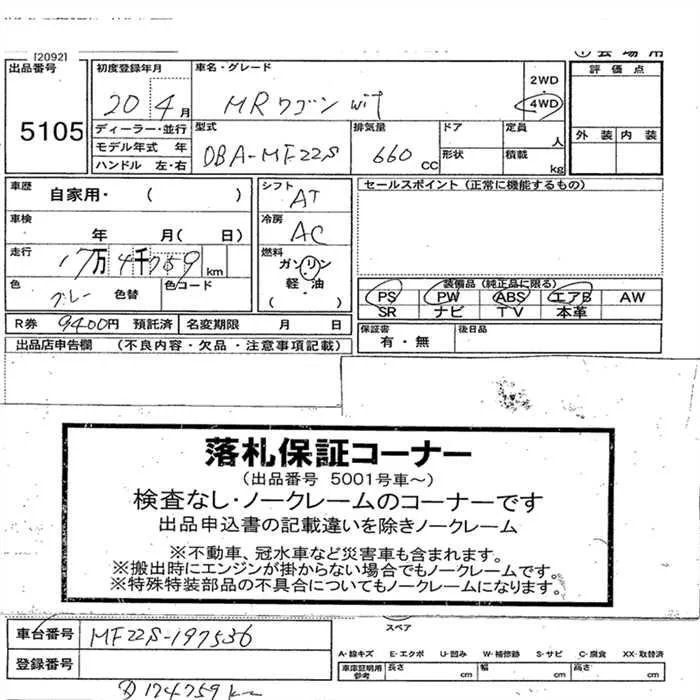 [2092]
① 会場用
出品番号 5105
初度登録年月 20 4月
車名・グレード MRワゴン wit
2WD
4WD
評価点
外装 内装
ディーラー・並行
モデル年式 年
ハンドル 左・右
型式 DBA-MF22S
排気量 660 CC
ドア
形状
定員 人
積載 kg
車歴 自家用・( )
シフト AT
セールスポイント (正常に機能するもの)
車検 年 月( 日)
冷房 AC
走行 17万4千759km
燃料 ガソリン
軽・油
( )
色 グレー 色替 色コード
装備品(純正品に限る)
PS PW ABS エアB AW
SR ナビ TV 本革
R券 9400円 預託済 名変期限 月 日
保証書 有・無
後日品
出品店申告欄 (不良内容・欠品・注意事項記載)
落札保証コーナー
(出品番号 5001号車~)
検査なし・ノークレームのコーナーです
出品申込書の記載違いを除きノークレーム
※不動車、冠水車など災害車も含まれます。
※搬出時にエンジンが掛からない場合でもノークレームです。
※特殊特装部品の不具合についてもノークレームになります。
スペア
車台番号 MF22S-197536
登録番号
A-線キズ E-エクボ U-凹み W-補修跡 S-サビ C-腐食 XX-取替済
車庫証明用参考 長さ cm 幅 cm 高さ cm
174759km